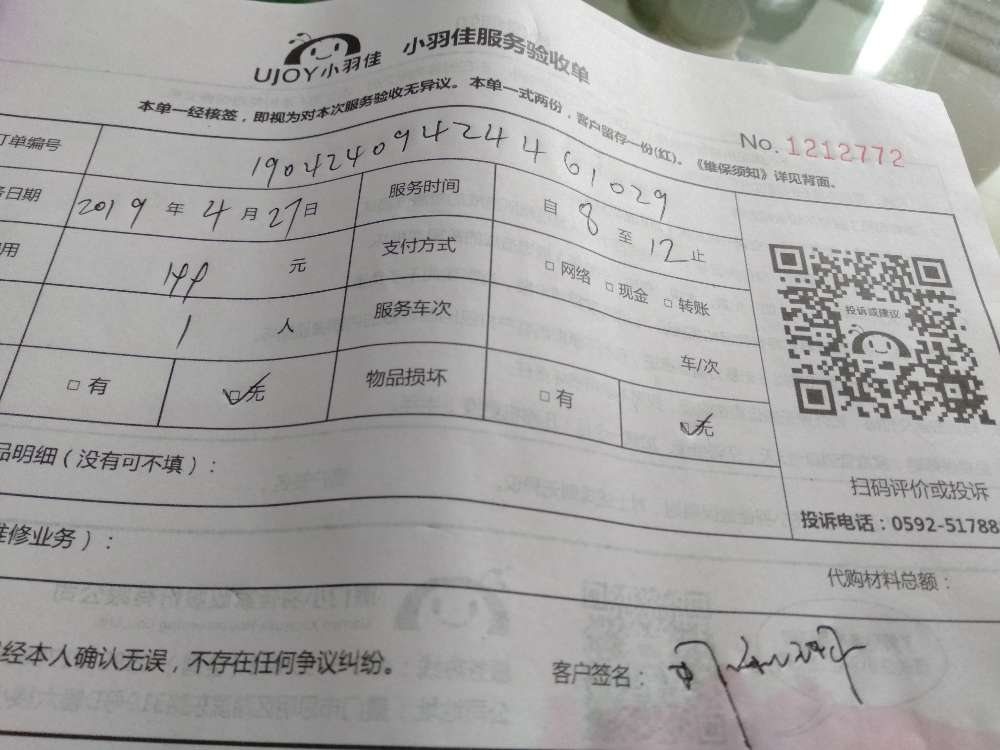 UJOY小羽佳 小羽佳服务验收单
本单一经核签，即视为对本次服务验收无异议。本单一式两份，客户留存一份(红)。《维保须知》详见背面。
No. 1212772
订单编号 190424094244461029
务日期 2019 年 4 月 27 日 服务时间 自 8 至 12 止
用 144 元 支付方式 □ 网络 □ 现金 □ 转账
1 人 服务车次 车/次
□ 有 □ 无 物品损坏 □ 有 □ 无
投诉或建议
品明细（没有可不填）：
扫码评价或投诉
投诉电话：0592-51788
维修业务）：
代购材料总额：
经本人确认无误，不存在任何争议纠纷。
客户签名：